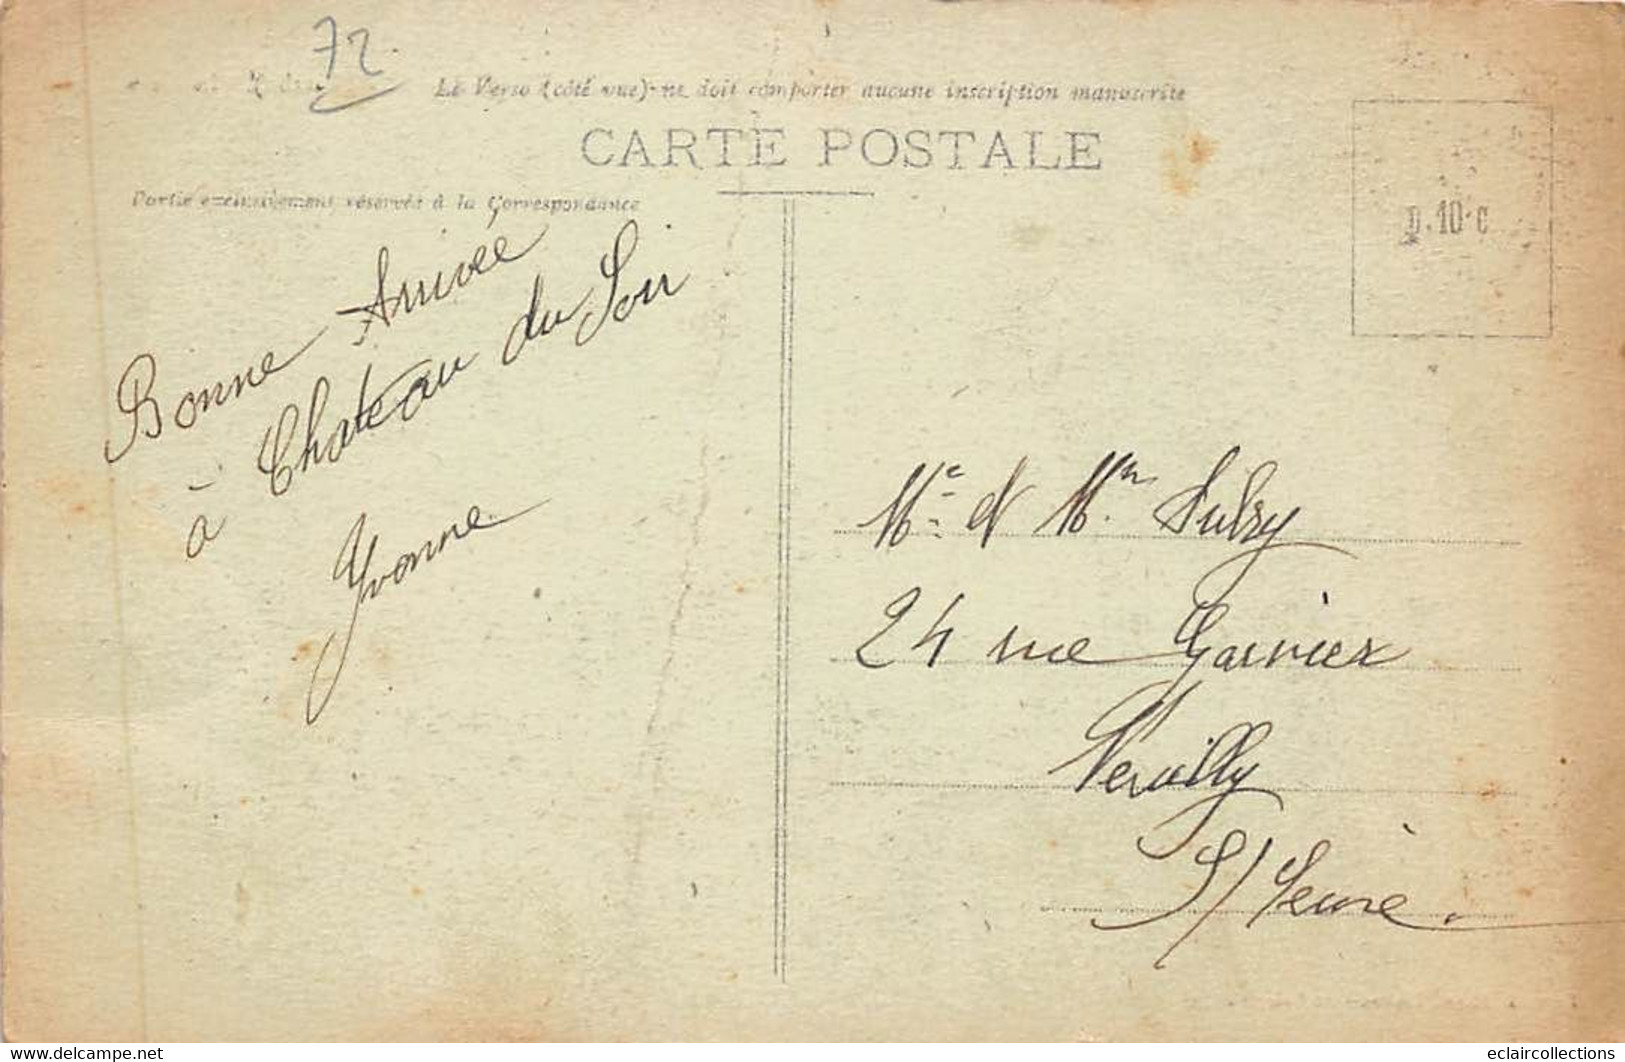 72
Le Verso (côté vue) ne doit comporter aucune inscription manuscrite
CARTE POSTALE
Partie exclusivement réservée à la Correspondance
D.10.C
Bonne Arrivée
à Chateau du Loir
Yvonne
Me et Mr Aubry
24 rue Garnier
Neuilly
S/Seine.
www.delcampe.net
eclaircollections